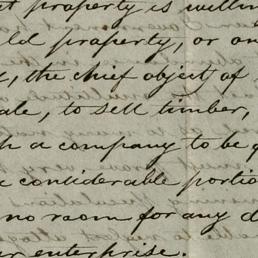 property is willin
ld property, or on
, the chief object of
ale, to sell timber,
h a company to be g
considerable portio
no room for any d
r enterprise.